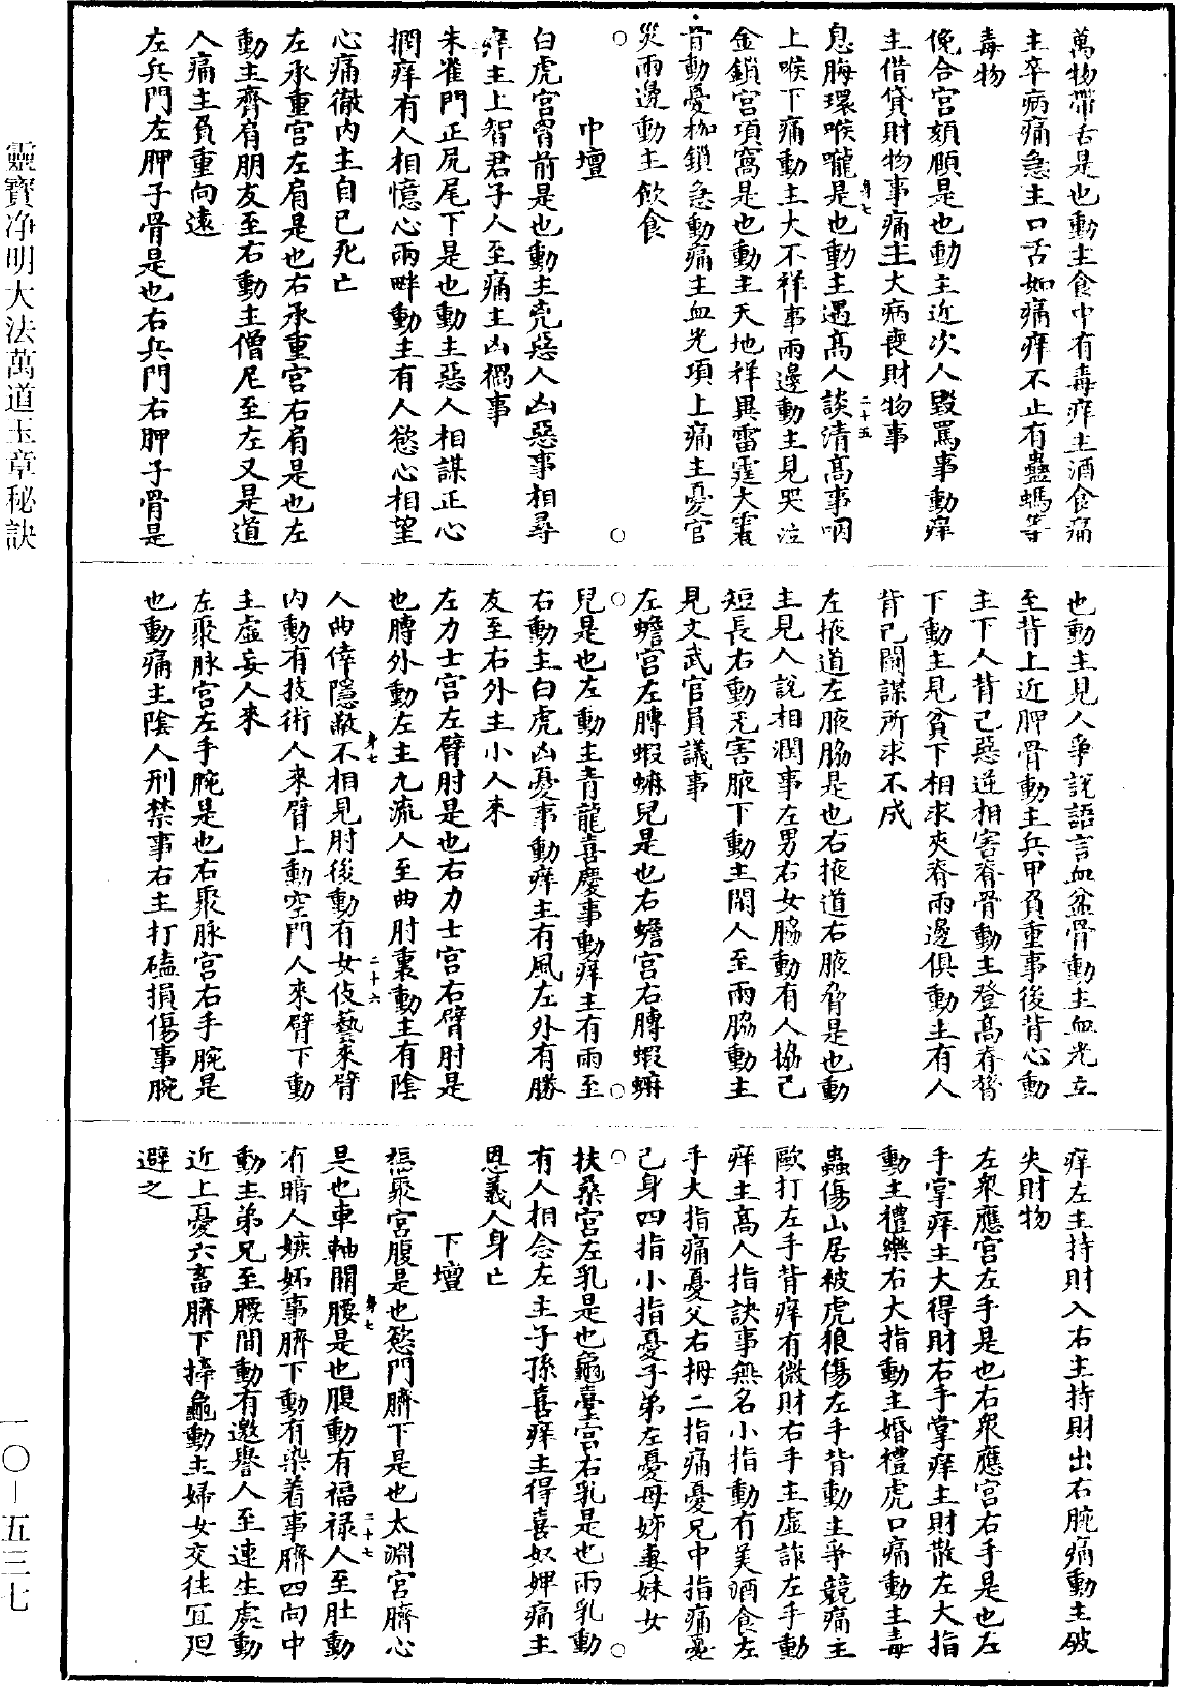 萬物帶舌是也動主食中有毒痒主酒食痛
主卒病痛急主口舌如痛痒不止有蠱螞等
毒物
俛合宮頦頤是也動主近次人毀罵事動痒
主借貸財物事痛主大病喪財物事
息脢環喉嚨是也動主遇高人談清高事咽
上喉下痛動主大不祥事兩邊動主見哭泣
金鎖宮項窩是也動主天地祥異雷霆大震
音動憂枷鎖急動痛主血光項上痛主憂官
災兩邊動主飲食
中壇
白虎宮胷前是也動主兇惡人凶惡事相尋
痒主上智君子人至痛主凶禍事
朱雀門正尻尾下是也動主惡人相謀正心
擱痒有人相憶心兩畔動主有人慾心相望
心痛徹内主自己死亡
左承重宮左肩是也右承重宮右肩是也左
動主齊肩朋友至右動主僧尼至左又是道
人痛主負重向遠
左兵門左胛子骨是也右兵門右胛子骨是
也動主見人爭說語言血盆骨動主血光立
至背上近胛骨動主兵甲負重事後背心動
主下人背己惡逆相害脊骨動主登高脊膂
下動主見貧下相求夾脊兩邊俱動主有人
背己鬭謀所求不成
左掖道左腋脇是也右掖道右腋脅是也動
主見人說相潤事左男右女脇動有人協己
短長右動无害腋下動主閑人至兩脇動主
見文武官員議事
左蟾宮左膊蝦䗫兒是也右蟾宮右膊蝦䗫
兒是也左動主青龍喜慶事動痒主有雨至
右動主白虎凶憂事動痒主有風左外有勝
友至右外主小人來
左力士宮左臂肘是也右力士宮右臂肘是
也膊外動左主九流人至曲肘裏動主有陰
人曲倖隱蔽不相見肘後動有女伎藝來臂
内動有技術人來臂上動空門人來臂下動
主虛妄人來
左聚脉宮左手腕是也右聚脉宮右手腕是
也動痛主陰人刑禁事右主打磕損傷事腕
痒左主持財入右主持財出右腕痛動主破
失財物
左衆應宮左手是也右衆應宮右手是也左
手掌痒主大得財右手掌痒主財散左大指
動主禮樂右大指動主婚禮虎口痛動主毒
蟲傷山居被虎狼傷左手背動主爭競痛主
歐打左手背痒有微財右手主虛詐左手動
痒主高人指訣事無名小指動有美酒食左
手大指痛憂父右拇二指痛憂兄中指痛憂
己身四指小指憂子弟左憂母姊妻妹女
扶桑宮左乳是也龜臺宮右乳是也兩乳動
有人相念左主子孫喜痒主得喜奴婢痛主
恩義人身亡
下壇
㧾聚宮腹是也慾門臍下是也太淵宮臍心
是也車軸關腰是也腹動有福禄人至肚動
有暗人嫉妬事臍下動有染着事臍四向中
動主弟兄至腰間動有邀譽人至連生處動
近上憂六畜臍下擡龜動主婦女交往宜廻
避之
身七
二十五
身七
二十六
身七
二十七
靈寶净明大法萬道玉章秘訣
一〇-五三七